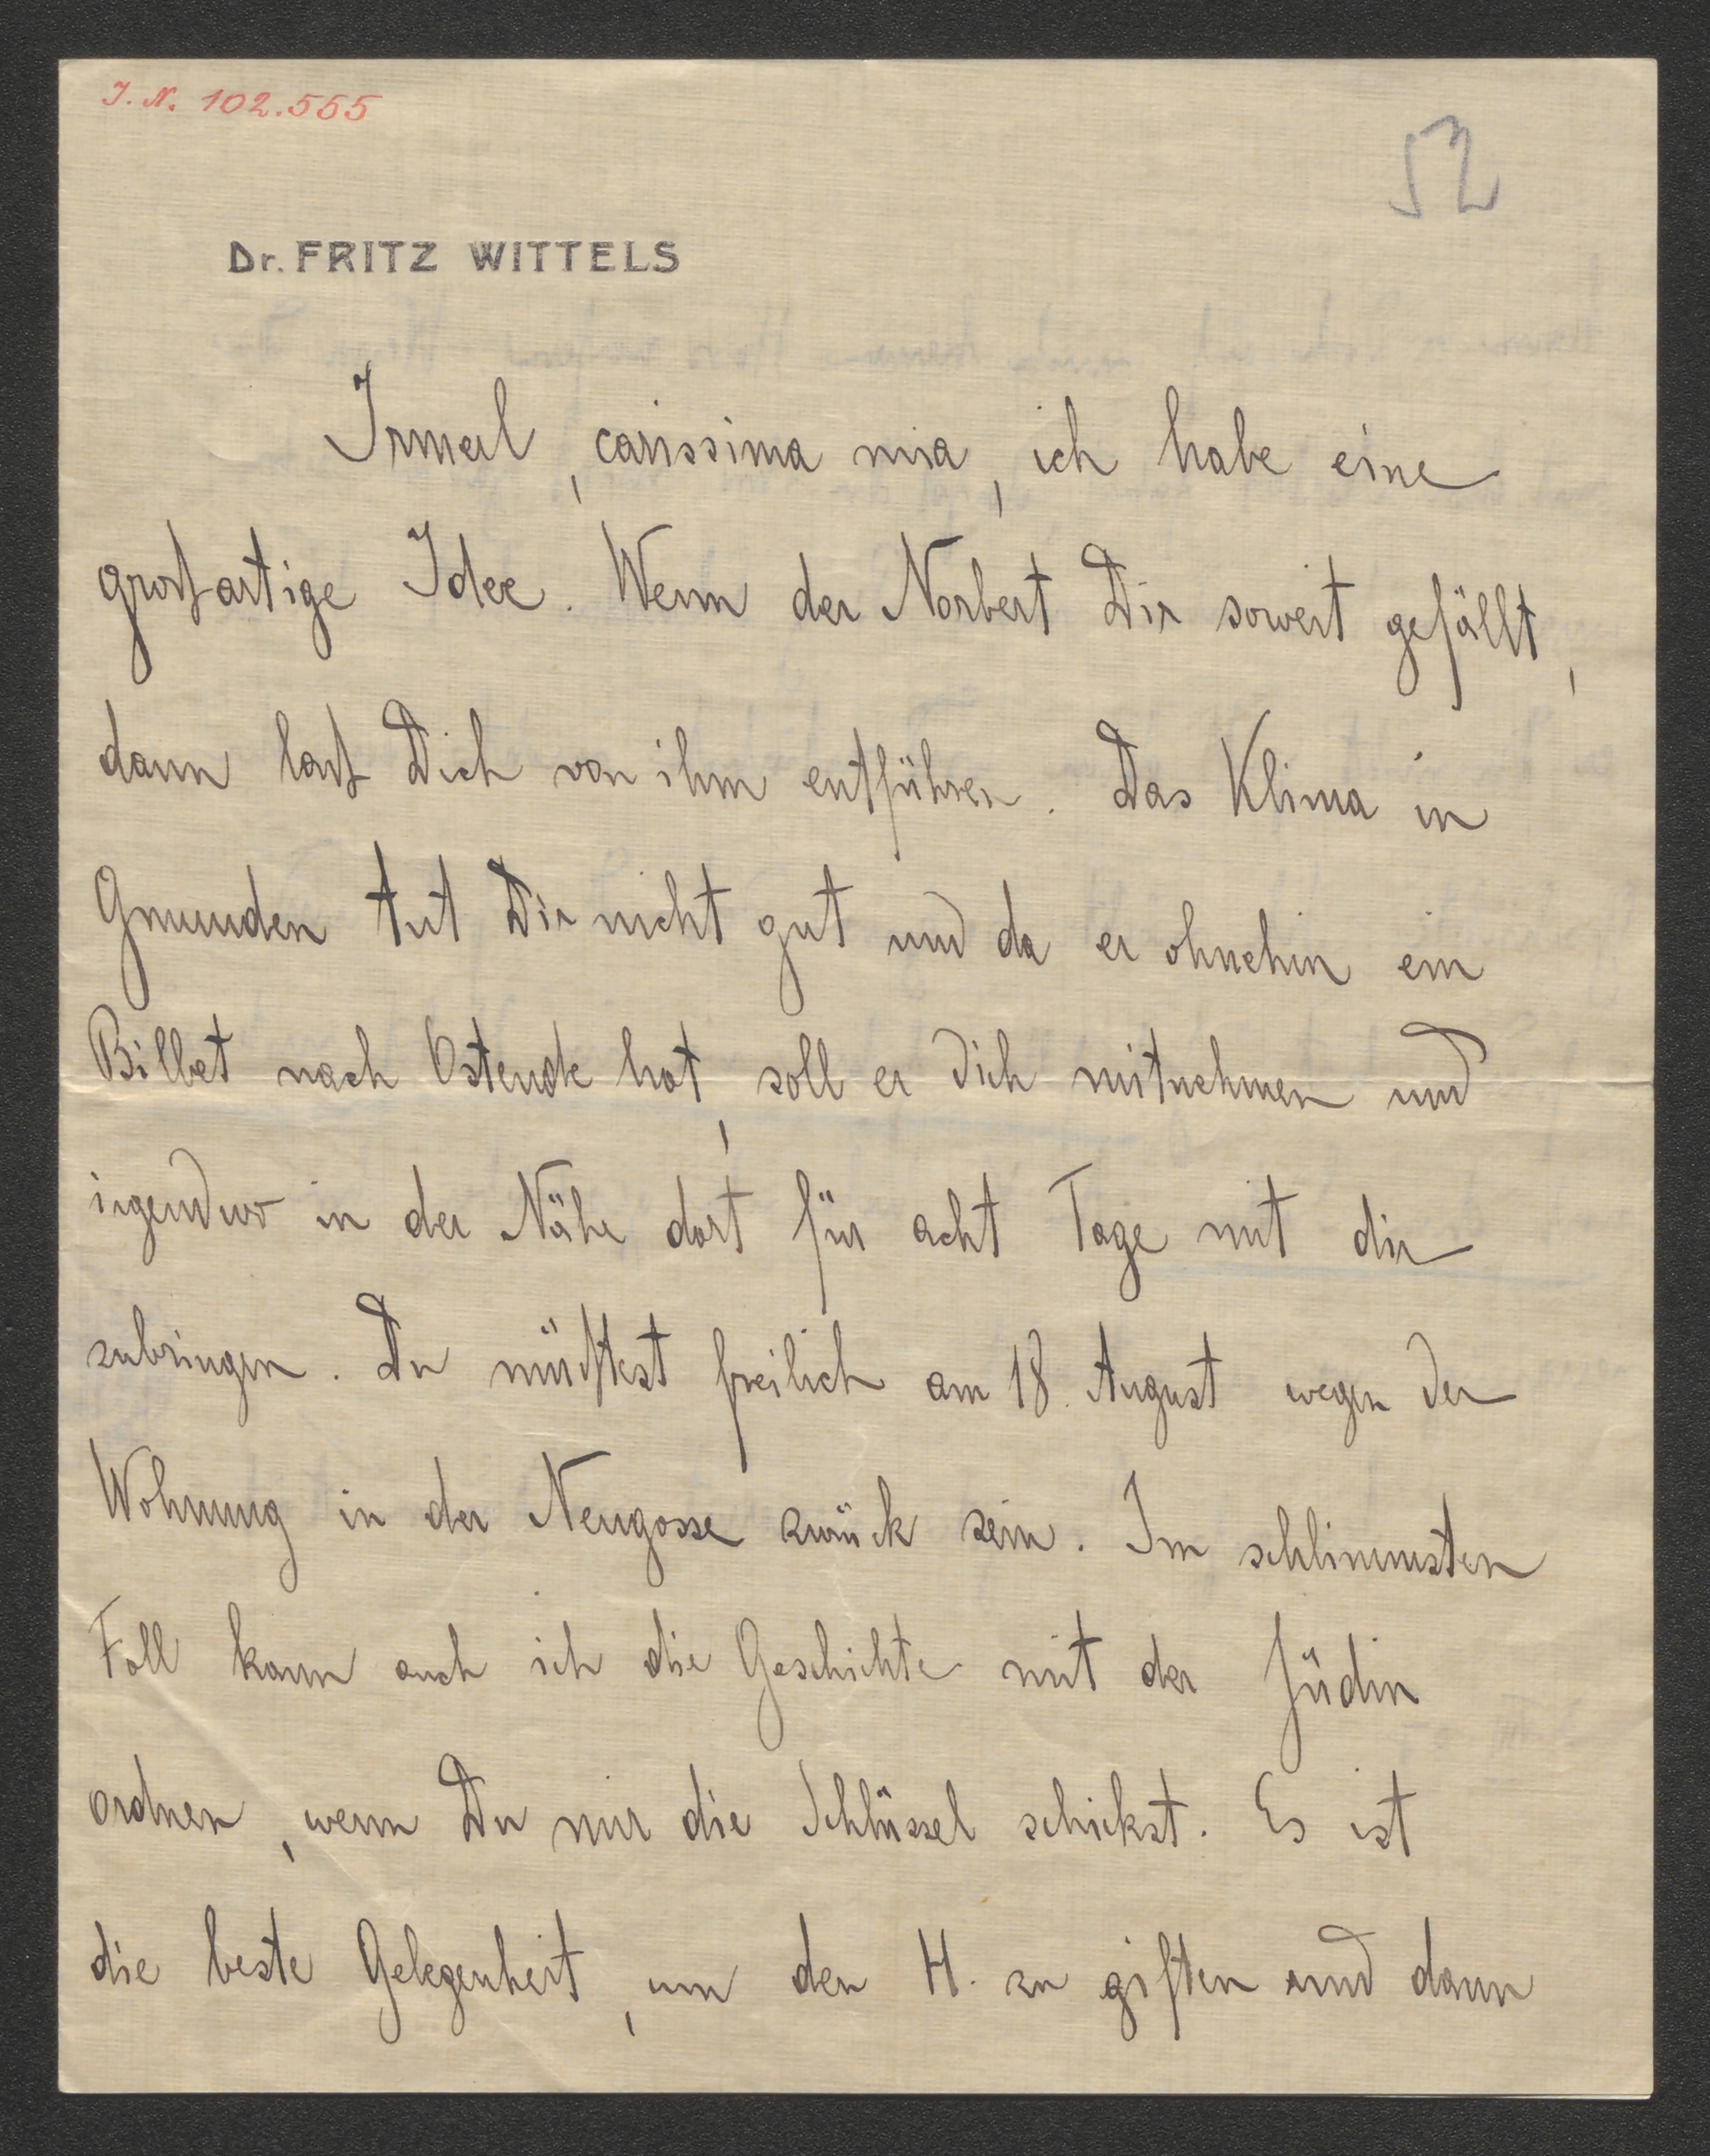 I. N. 102.555
52
Dr. FRITZ WITTELS
Irmerl, carissima mia, ich habe eine
großartige Idee. Wenn der Norbert Dir soweit gefällt,
dann laß Dich von ihm entführen. Das Klima in
Gmunden tut Dir nicht gut und da er ohnehin ein
Billet nach Ostende hat, soll er dich mitnehmen und
irgendwo in der Nähe dort für acht Tage mit dir
zubringen. Du müßtest freilich am 18. August wegen der
Wohnung in der Neugasse zurück sein. Im schlimmsten
Fall kann auch ich die Geschichte mit der Jüdin
ordnen, wenn Du mir die Schlüssel schickst. Es ist
die beste Gelegenheit, um den H. zu giften und dann